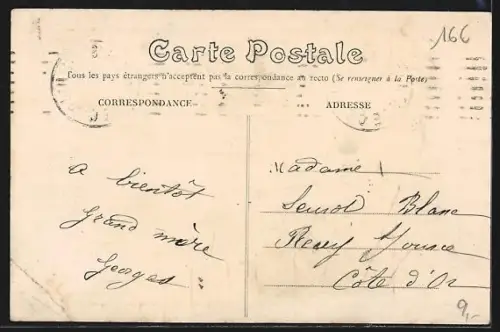 166
Carte Postale
Tous les pays étrangers n'acceptent pas la correspondance au recto (Se renseigner à la Poste)
CORRESPONDANCE
ADRESSE
a bientôt
grand mère
Georges
Madame
Blanc
Fleurey
Côte d'Or
9,-